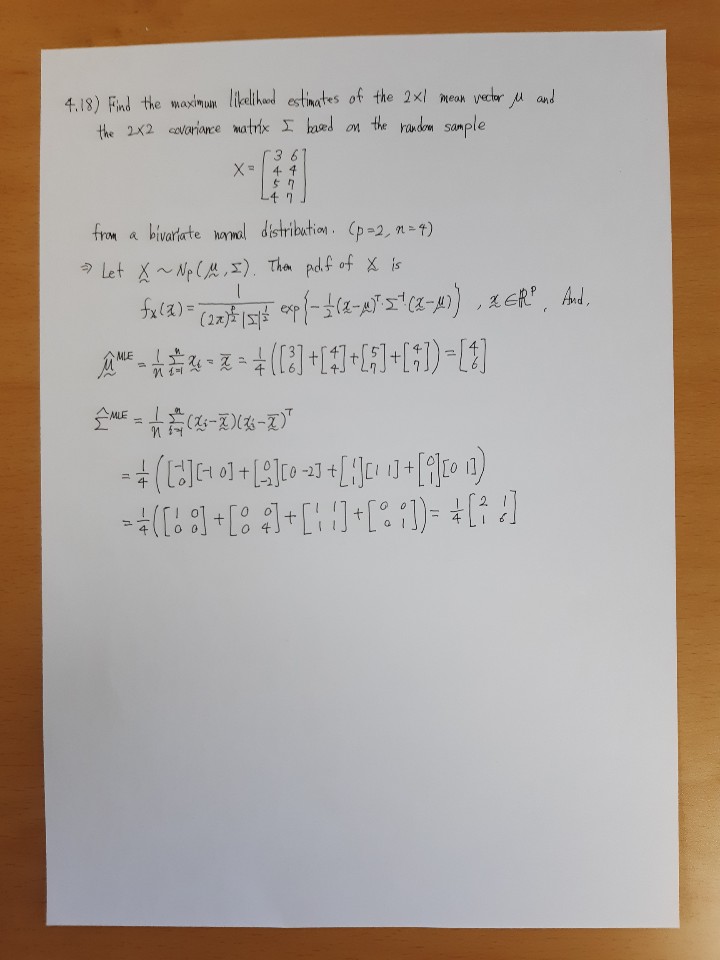 4.18) Find the maximum likelihood estimates of the 2×1 mean vector μ and
the 2×2 covariance matrix Σ based on the random sample
X = [3 6
4 4
5 7
4 7]
from a bivariate normal distribution. (p=2, n=4)
⇒ Let X ~ Np(μ, Σ). Then pdf of X is
fx(x) = 1/((2π)^(p/2) |Σ|^(1/2)) exp{-1/2 (x-μ)^T · Σ^-1 · (x-μ)}, x ∈ ℝ^p. And,
μ̂^MLE = 1/n Σ_{i=1}^n xi = x̄ = 1/4 ([3 6] + [4 4] + [5 7] + [4 7]) = [4 6]
Σ̂^MLE = 1/n Σ_{i=1}^n (xi - x̄)(xi - x̄)^T
= 1/4 ([-1 0][-1 0] + [0 -2][0 -2] + [1 1][1 1] + [0 1][0 1])
= 1/4 ([1 0 0 0] + [0 0 0 4] + [1 1 1 1] + [0 0 0 1]) = 1/4 [2 1 1 6]